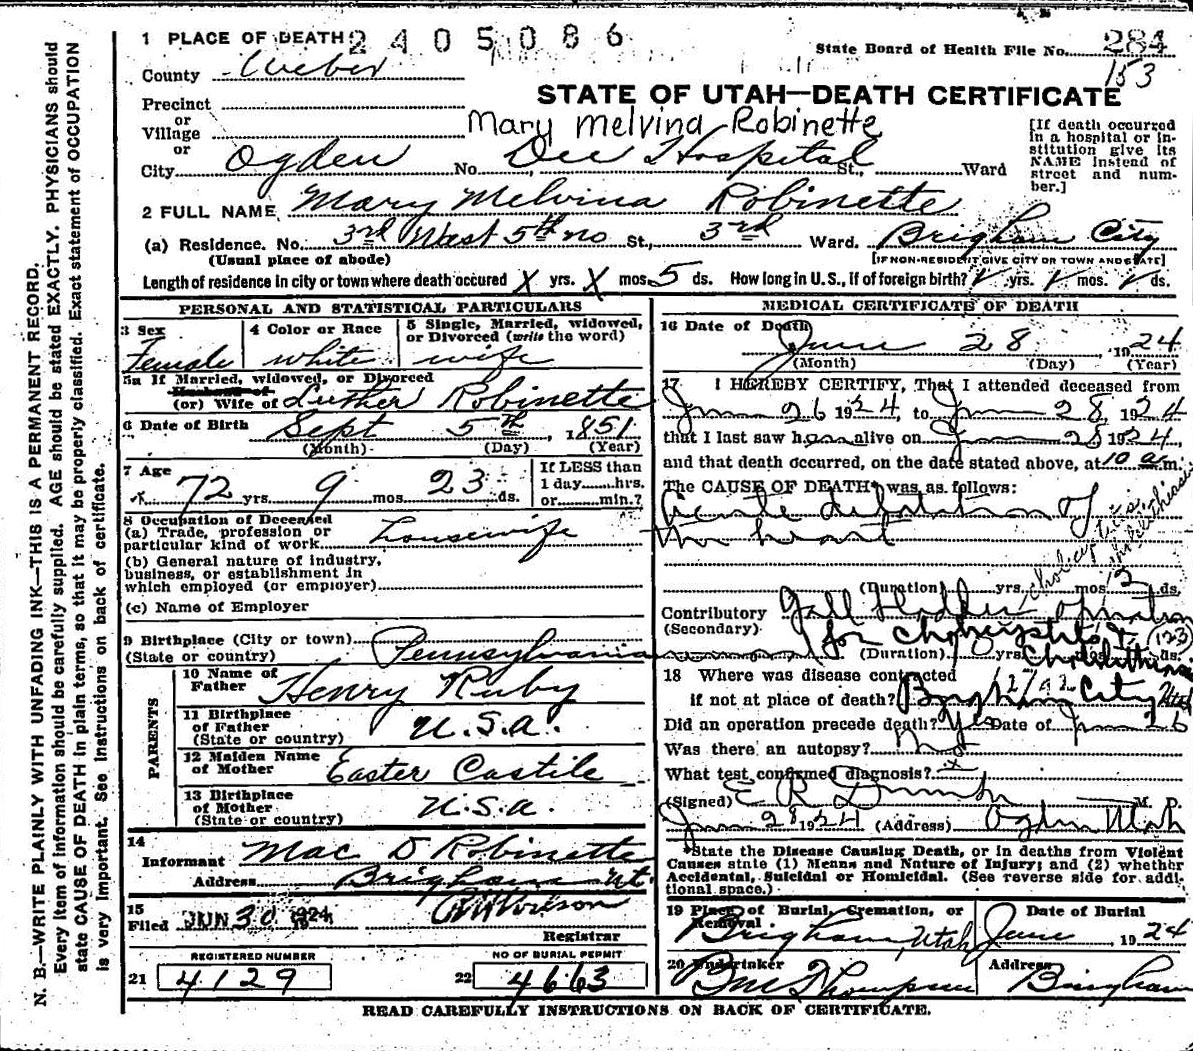 1 PLACE OF DEATH 2405086
State Board of Health File No. 284
153
County Weber
STATE OF UTAH—DEATH CERTIFICATE
Precinct
or
Village
Mary Melvina Robinette
or
City Ogden No. Dee Hospital St., Ward
[If death occurred in a hospital or institution give its NAME instead of street and number.]
2 FULL NAME Mary Melvina Robinette
(a) Residence. No. 3rd West 5th no St., 3rd Ward. Brigham City
(Usual place of abode) [IF NON-RESIDENT GIVE CITY OR TOWN AND STATE]
Length of residence in city or town where death occured X yrs. X mos. 5 ds. How long in U.S., if of foreign birth? yrs. mos. ds.
PERSONAL AND STATISTICAL PARTICULARS
3 Sex Female
4 Color or Race white
5 Single, Married, widowed, or Divorced (write the word) wife
5a If Married, widowed, or Divorced
Husband of
(or) Wife of Luther Robinette
6 Date of Birth Sept 5th, 1851
(Month) (Day) (Year)
7 Age 72 yrs. 9 mos. 23 ds.
If LESS than
1 day hrs.
or min.?
8 Occupation of Deceased
(a) Trade, profession or
particular kind of work housewife
(b) General nature of industry,
business, or establishment in
which employed (or employer)
(c) Name of Employer
9 Birthplace (City or town)
(State or country) Pennsylvania
PARENTS
10 Name of Father Henry Ruby
11 Birthplace of Father (State or country) U.S.A.
12 Maiden Name of Mother Easter Castile
13 Birthplace of Mother (State or country) U.S.A.
14
Informant Mac D Robinette
Address Brigham Ut.
15
Filed JUN 30 1924
Registrar
REGISTERED NUMBER
21 4129
NO OF BURIAL PERMIT
22 4663
MEDICAL CERTIFICATE OF DEATH
16 Date of Death June 28, 1924
(Month) (Day) (Year)
17 I HEREBY CERTIFY, That I attended deceased from
June 26 1924, to June 28, 1924
that I last saw her alive on June 28 1924,
and that death occurred, on the date stated above, at 10 a.m.
The CAUSE OF DEATH* was as follows:
Acute dilatation of
the heart
(Duration) yrs. mos. 2 ds.
Contributory Gall bladder operation
(Secondary) for cholecystitis &
Cholelithiasis
(123)
(Duration) yrs. mos. ds.
18 Where was disease contracted
if not at place of death? Brigham City Utah
Did an operation precede death? Yes Date of June 26
Was there an autopsy? no
What test confirmed diagnosis? x
(Signed) E R Dumke M. D.
June 28 1924 (Address) Ogden Utah
*State the Disease Causing Death, or in deaths from Violent
Causes state (1) Means and Nature of Injury; and (2) whether
Accidental, Suicidal or Homicidal. (See reverse side for additional space.)
19 Place of Burial, Cremation, or Removal. Brigham, Utah
Date of Burial June, 1924
20 Undertaker Thompson
Address Brigham
READ CAREFULLY INSTRUCTIONS ON BACK OF CERTIFICATE.
N. B.—WRITE PLAINLY WITH UNFADING INK—THIS IS A PERMANENT RECORD.
Every item of information should be carefully supplied. AGE should be stated EXACTLY. PHYSICIANS should
state CAUSE OF DEATH in plain terms, so that it may be properly classified. Exact statement of OCCUPATION
is very important. See Instructions on back of certificate.